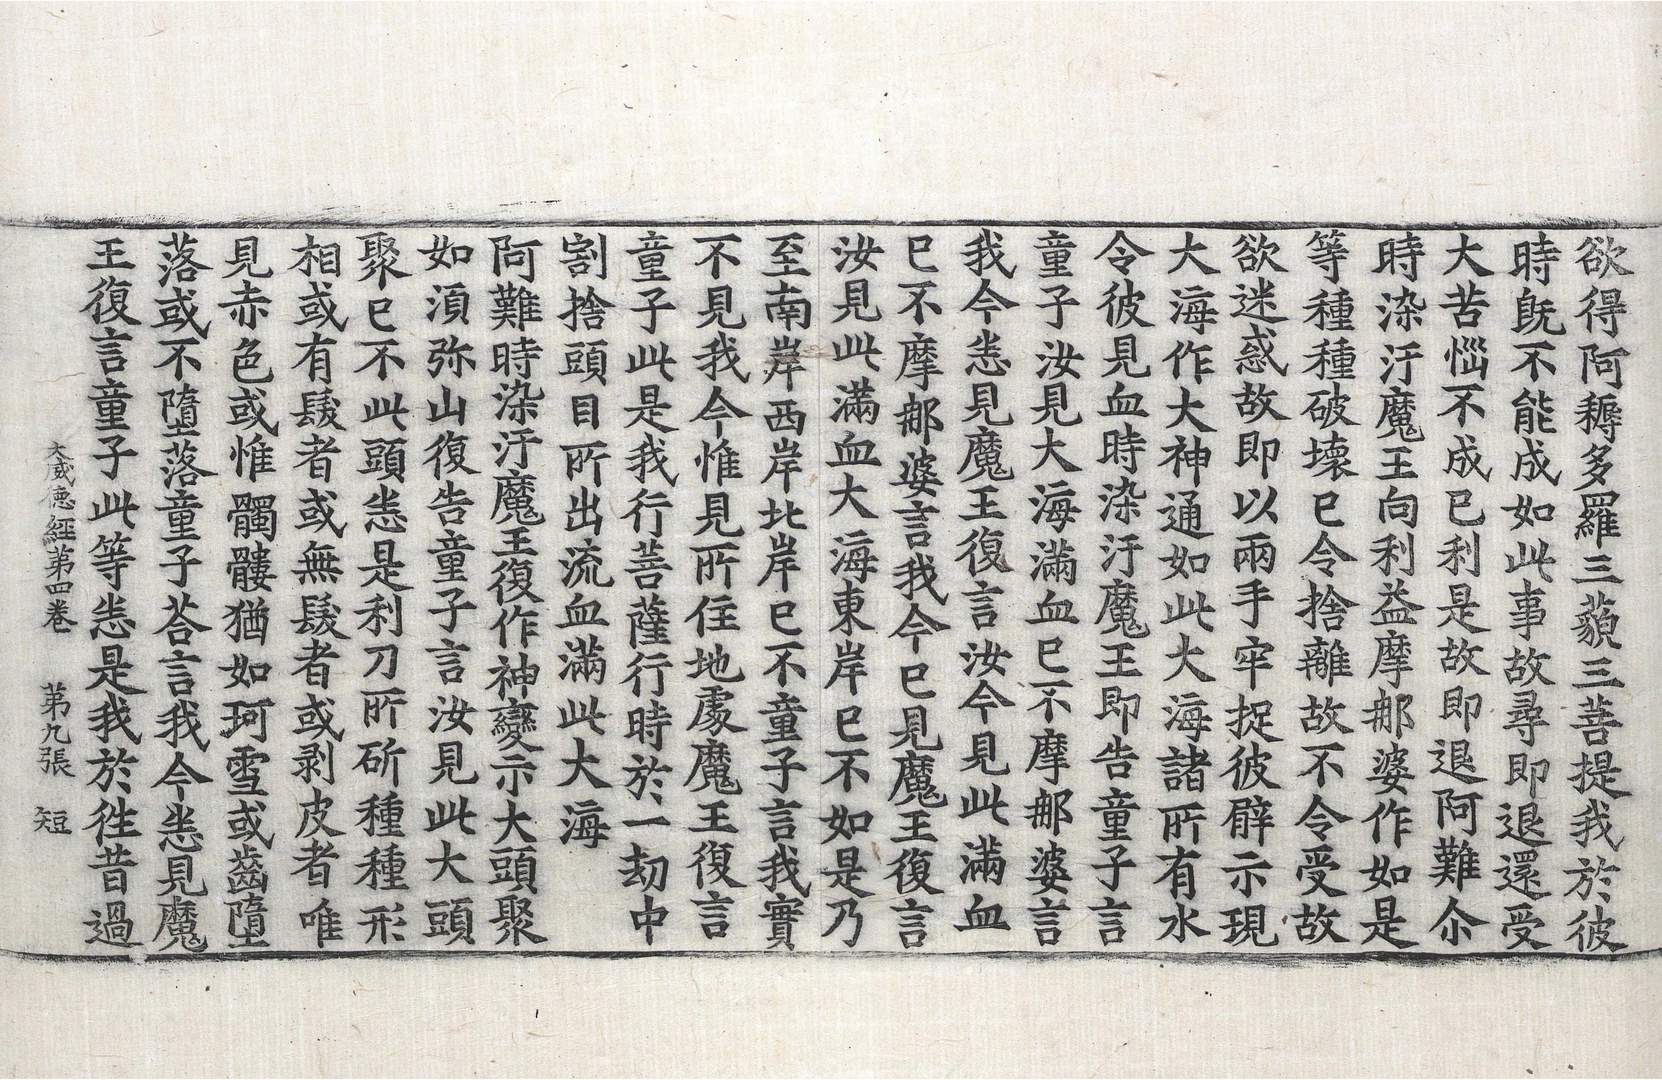 欲得阿耨多羅三藐三菩提我於彼
時旣不能成如此事故尋即退還受
大苦惱不成已利是故即退阿難尒
時染汙魔王向利益摩䣕婆作如是
等種種破壞已令捨離故不令受故
欲迷惑故即以兩手牢捉彼臂示現
大海作大神通如此大海諸所有水
令彼見血時染汙魔王即告童子言
童子汝見大海滿血已不摩䣕婆言
我今悉見魔王復言汝今見此滿血
已不摩䣕婆言我今已見魔王復言
汝見此滿血大海東岸已不如是乃
至南岸西岸北岸已不童子言我實
不見我今惟見所住地處魔王復言
童子此是我行菩薩行時於一劫中
割捨頭目所出流血滿此大海
阿難時染汙魔王復作神變示大頭聚
如湏弥山復告童子言汝見此大頭
聚已不此頭悉是利刀所斫種種形
相或有髮者或無髮者或剥皮者唯
見赤色或惟髑髏猶如珂雪或齒墮
落或不墮落童子荅言我今悉見魔
王復言童子此等悉是我於徃昔過
大威德經第四卷 第九張 短